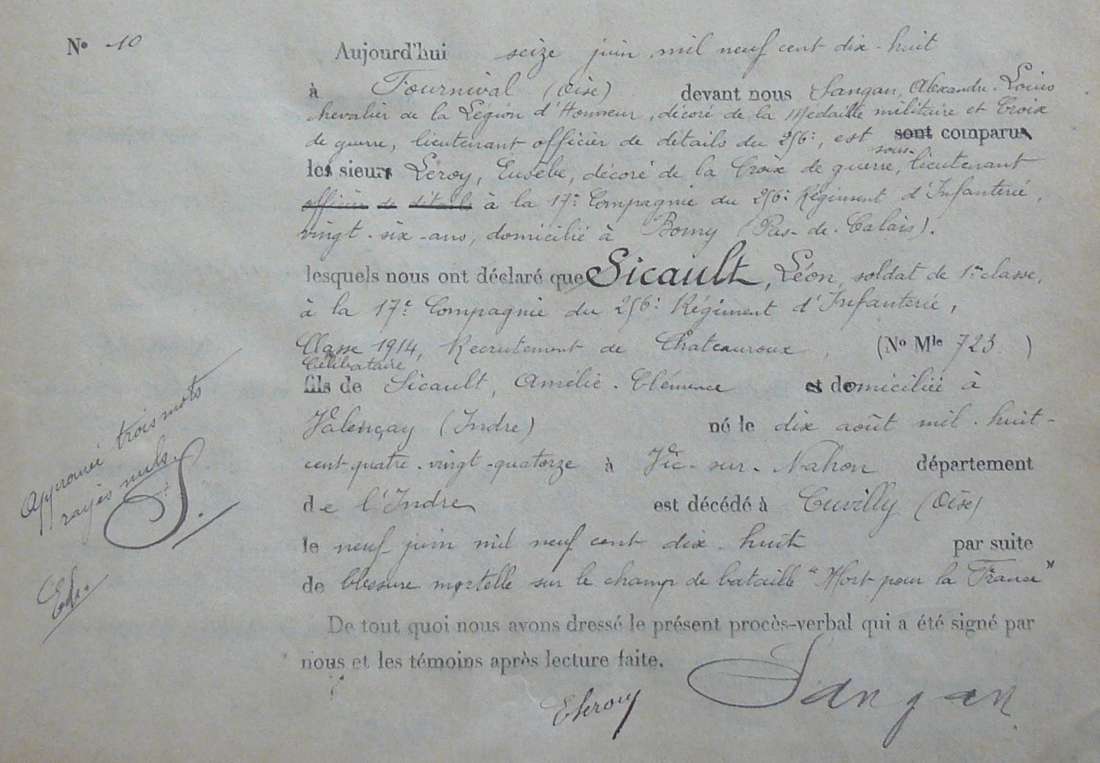 N° 10
Aujourd'hui seize juin mil neuf cent dix-huit
à Fournival (Oise) devant nous Sangan, Alexandre Louis
chevalier de la Légion d'Honneur, décoré de la Médaille militaire et Croix
de guerre, lieutenant officier de détails du 256e, est sont comparus
sous-
les sieurs Leroy, Eusèbe, décoré de la Croix de guerre, lieutenant
officier de détails à la 17e Compagnie du 256e Régiment d'Infanterie,
vingt-six-ans, domicilié à Bomy (Pas-de-Calais).
lesquels nous ont déclaré que Sicault, Léon, soldat de 1re classe,
à la 17e Compagnie du 256e Régiment d'Infanterie,
Classe 1914, Recrutement de Chateauroux, (N° Mle 723)
Célibataire
fils de Sicault, Amélie-Clémence et domiciliée à
Valençay (Indre) né le dix août mil-huit-
cent-quatre-vingt-quatorze à Vic-sur-Nahon département
de l'Indre est décédé à Cuvilly (Oise)
le neuf juin mil neuf cent dix-huit par suite
de blessure mortelle sur le champ de bataille "Mort pour la France"
De tout quoi nous avons dressé le présent procès-verbal qui a été signé par
nous et les témoins après lecture faite.
Approuvé trois mots
rayés nuls
S.
ELeroy
Sangan